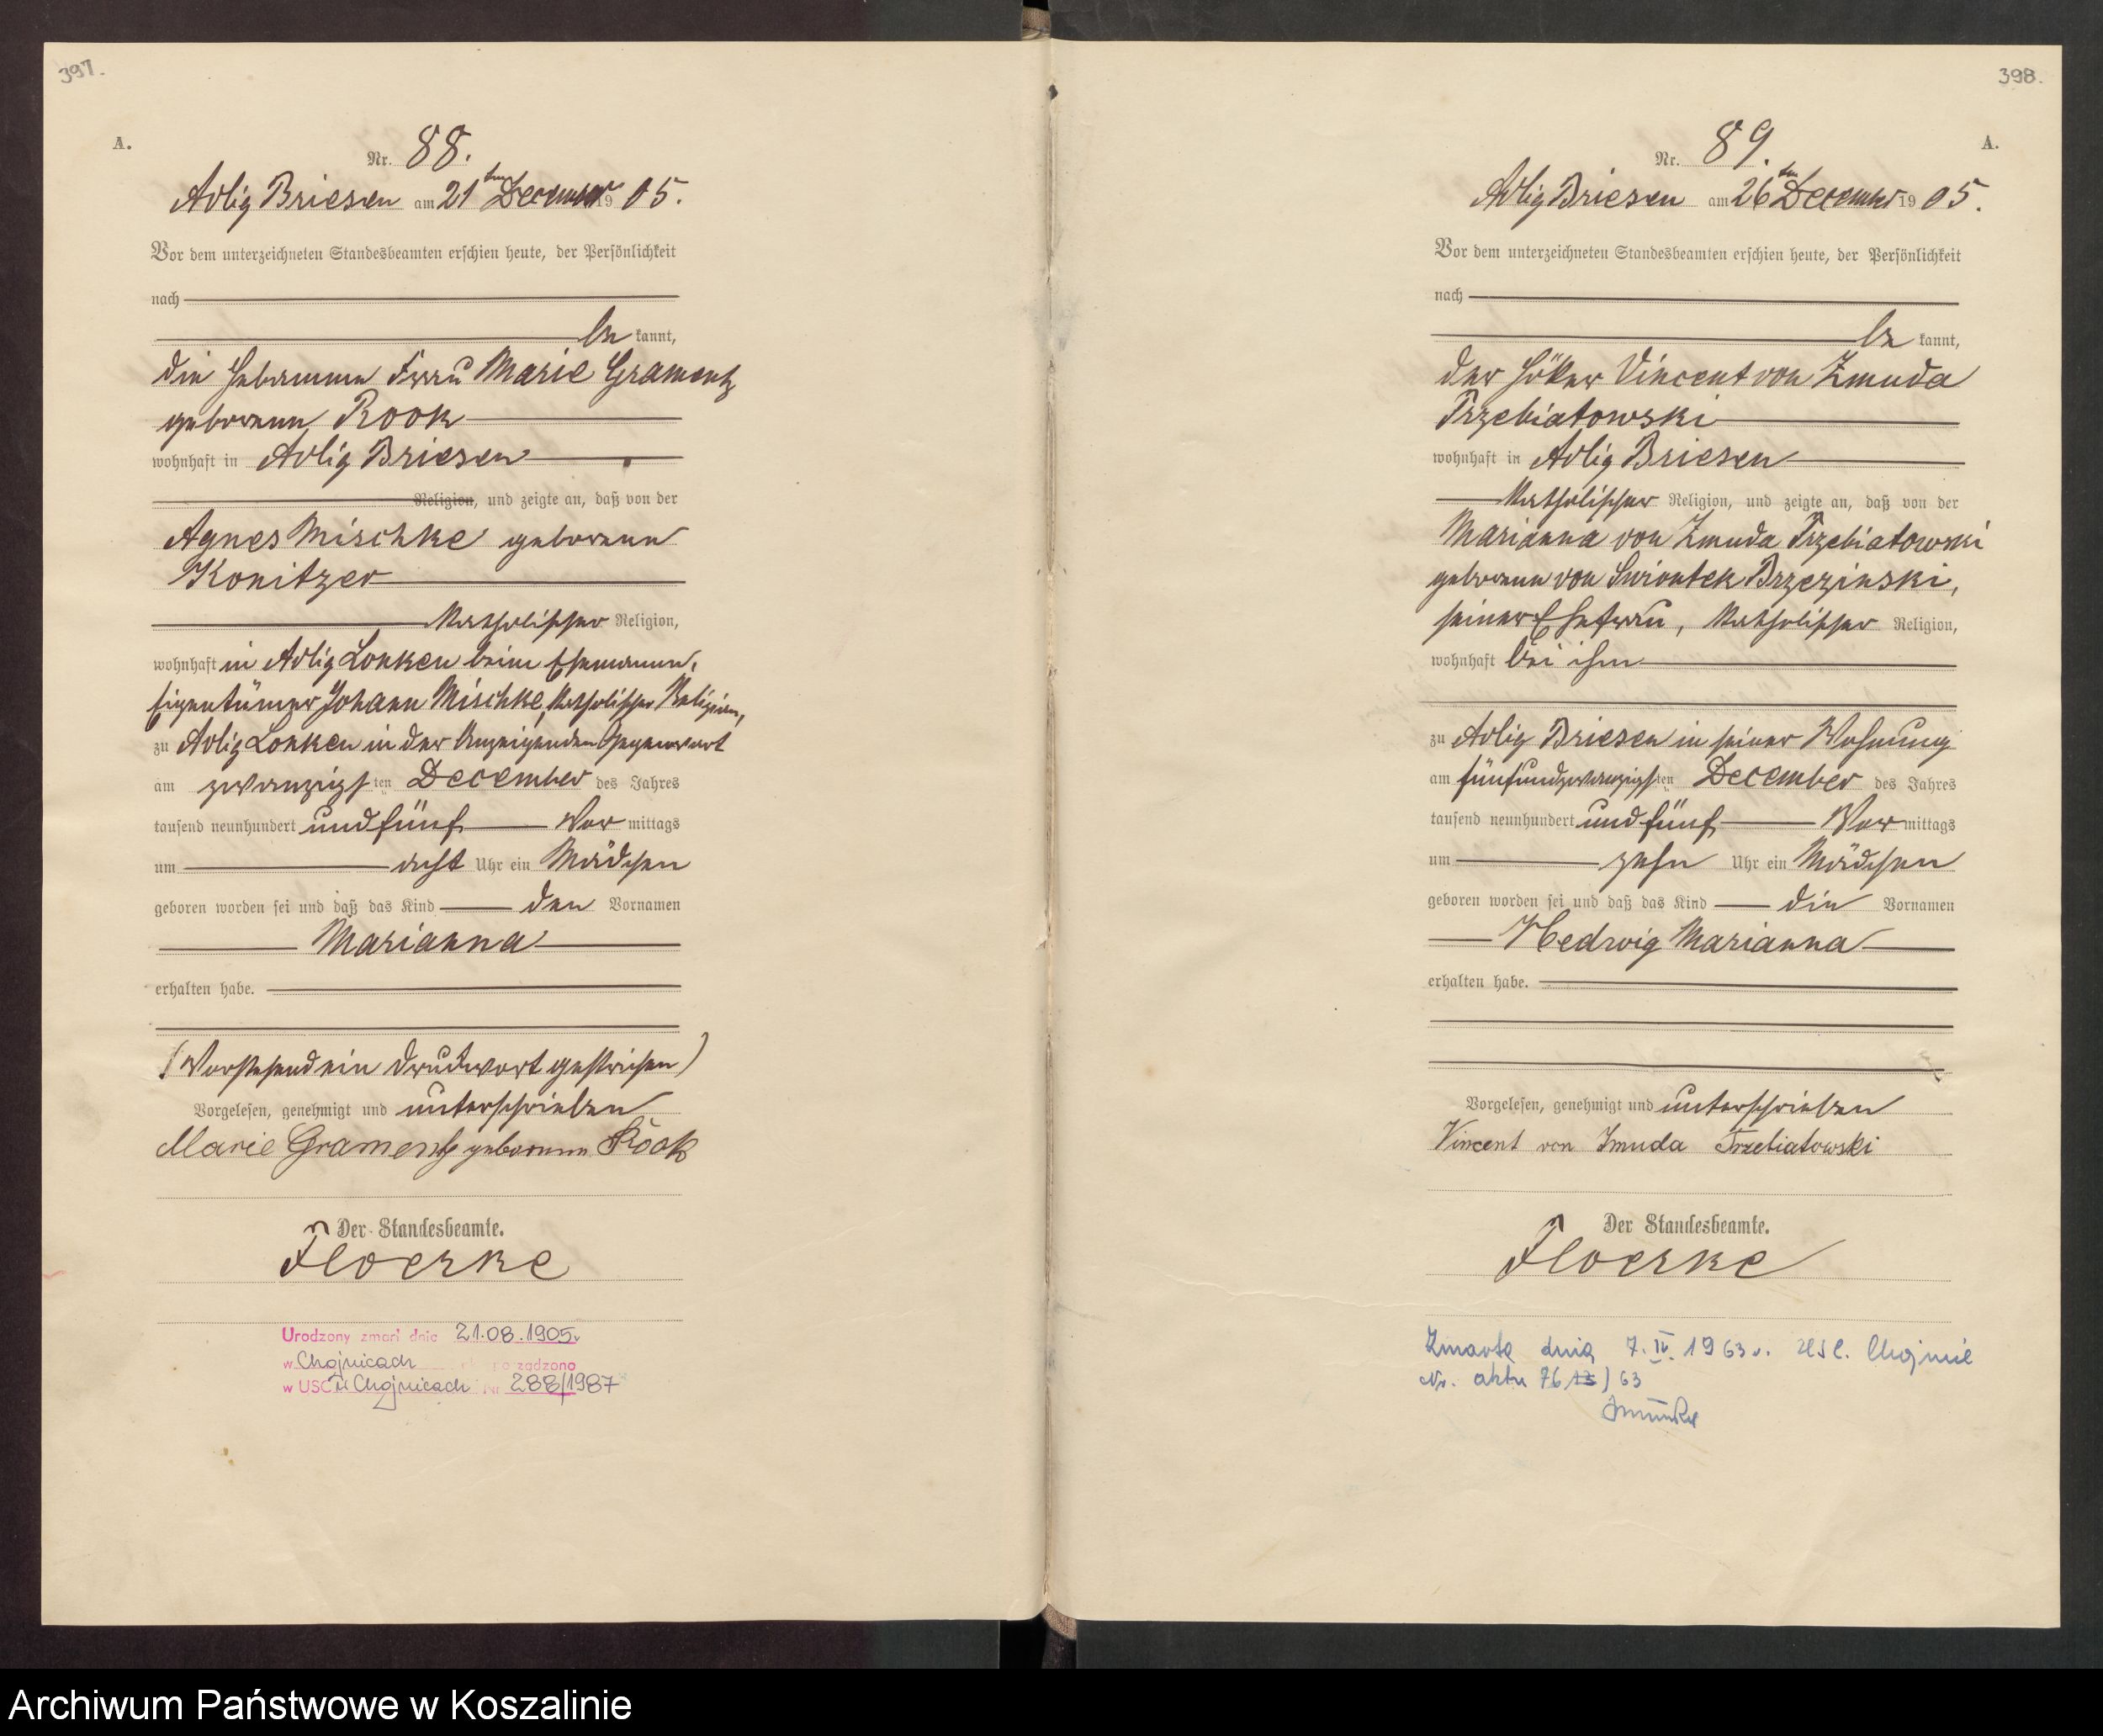 397.
A.
Nr. 88.
Adlig Briesen am 21ten December 1905.
Vor dem unterzeichneten Standesbeamten erschien heute, der Persönlichkeit
nach
be kannt,
die Hebamme Frau Marie Gramentz
geborene Rook
wohnhaft in Adlig Briesen
Religion, und zeigte an, daß von der
Agnes Mischke geborene
Konitzer
katholischer Religion,
wohnhaft in Adlig Lonken beim Ehemanne,
Eigentümer Johann Mischke, katholischer Religion,
zu Adlig Lonken in der Anzeigenden Gegenwart
am zwanzigsten December des Jahres
tausend neunhundert und fünf Vor mittags
um acht Uhr ein Mädchen
geboren worden sei und daß das Kind den Vornamen
Marianna
erhalten habe.
(Vorstehend ein Druckwort gestrichen)
Vorgelesen, genehmigt und unterschrieben
Marie Gramentz geborene Rook
Der Standesbeamte.
Floerke
Urodzony zmarł dnia 21.08.1905r
w Chojnicach
w USC w Chojnicach Nr 288/1987
398.
A.
Nr. 89.
Adlig Briesen am 26ten December 1905.
Vor dem unterzeichneten Standesbeamten erschien heute, der Persönlichkeit
nach
be kannt,
der Höker Vincent von Zmuda
Trzebiatowski
wohnhaft in Adlig Briesen
katholischer Religion, und zeigte an, daß von der
Marianna von Zmuda Trzebiatowski
geborene von Swiontek Brzezinski,
seiner Ehefrau, katholischer Religion,
wohnhaft bei ihm
zu Adlig Briesen in seiner Wohnung
am fünfundzwanzigsten December des Jahres
tausend neunhundert und fünf Vor mittags
um zehn Uhr ein Mädchen
geboren worden sei und daß das Kind die Vornamen
Hedwig Marianna
erhalten habe.
Vorgelesen, genehmigt und unterschrieben
Vincent von Zmuda Trzebiatowski
Der Standesbeamte.
Floerke
Zmarła dnia 7.IV.1963r. USC. Chojnice
Nr. aktu 76 /63
Archiwum Państwowe w Koszalinie